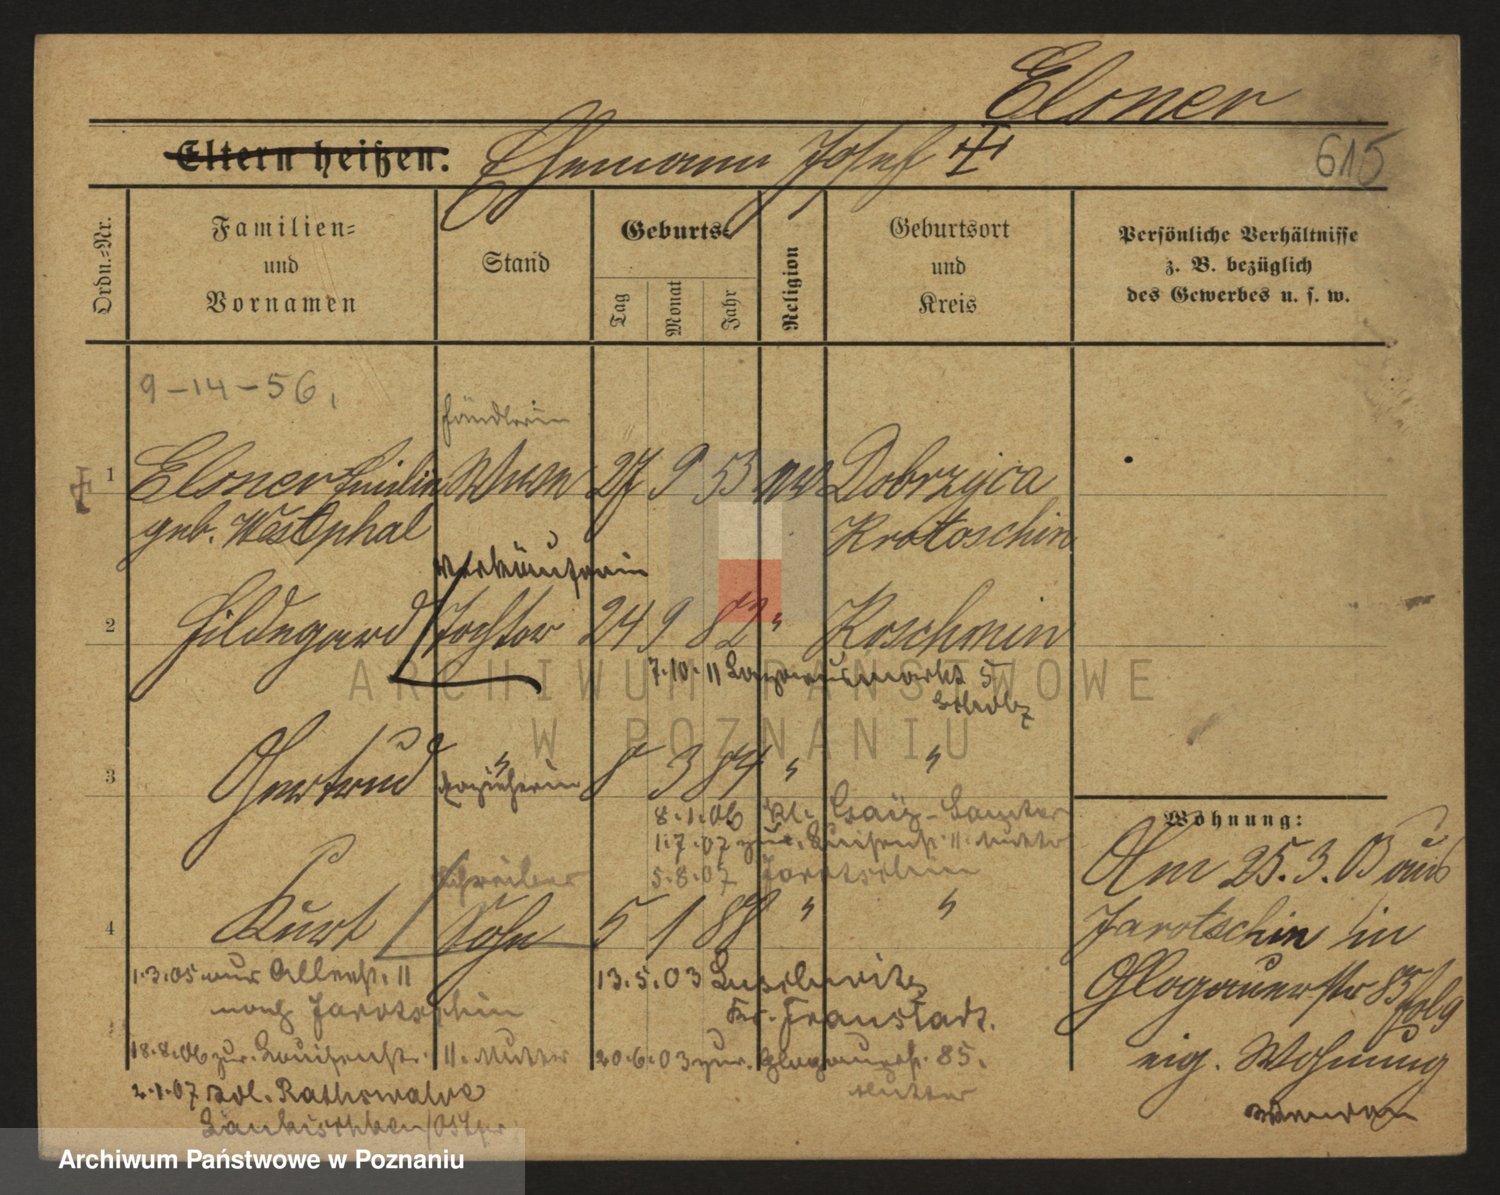 Elsner
Eltern heißen: Ehemann Josef
615
Ordn.-Nr.
Familien-
und
Vornamen
Stand
Geburts-
Tag
Monat
Jahr
Religion
Geburtsort
und
Kreis
Persönliche Verhältnisse
z. B. bezüglich
des Gewerbes u. s. w.
9-14-56,
Händlerin
1 Elsner Emilie Wwe 27 9 53 Dobrzyca
geb. Westphal Krotoschin
Verkäuferin
2 Hildegard Tochter 24 9 82 " Koschmin
7.10.11 Lazarusmarkt 5
3 Gertrud " 8 3 84 " "
Erzieherin
8.1.06 Kl. Gay-Samter
1.7.07 zur. Luisenstr. 11. Mutter
5.8.07 Jarotschin
Schreiber
4 Kurt Sohn 5 1 88 " "
1.3.05 11
nach Jarotschin
18.8.06 zur. Louisenstr. 11. Mutter
2.1.07 Rathswalde
13.5.03
Kr. Fraustadt.
20.6.03 zur. Glogauerstr. 85.
Mutter
Wohnung:
Am 25.3.03 aus
Jarotschin in
Glogauerstr 85
eig. Wohnung
ARCHIWUM PAŃSTWOWE
W POZNANIU
Archiwum Państwowe w Poznaniu